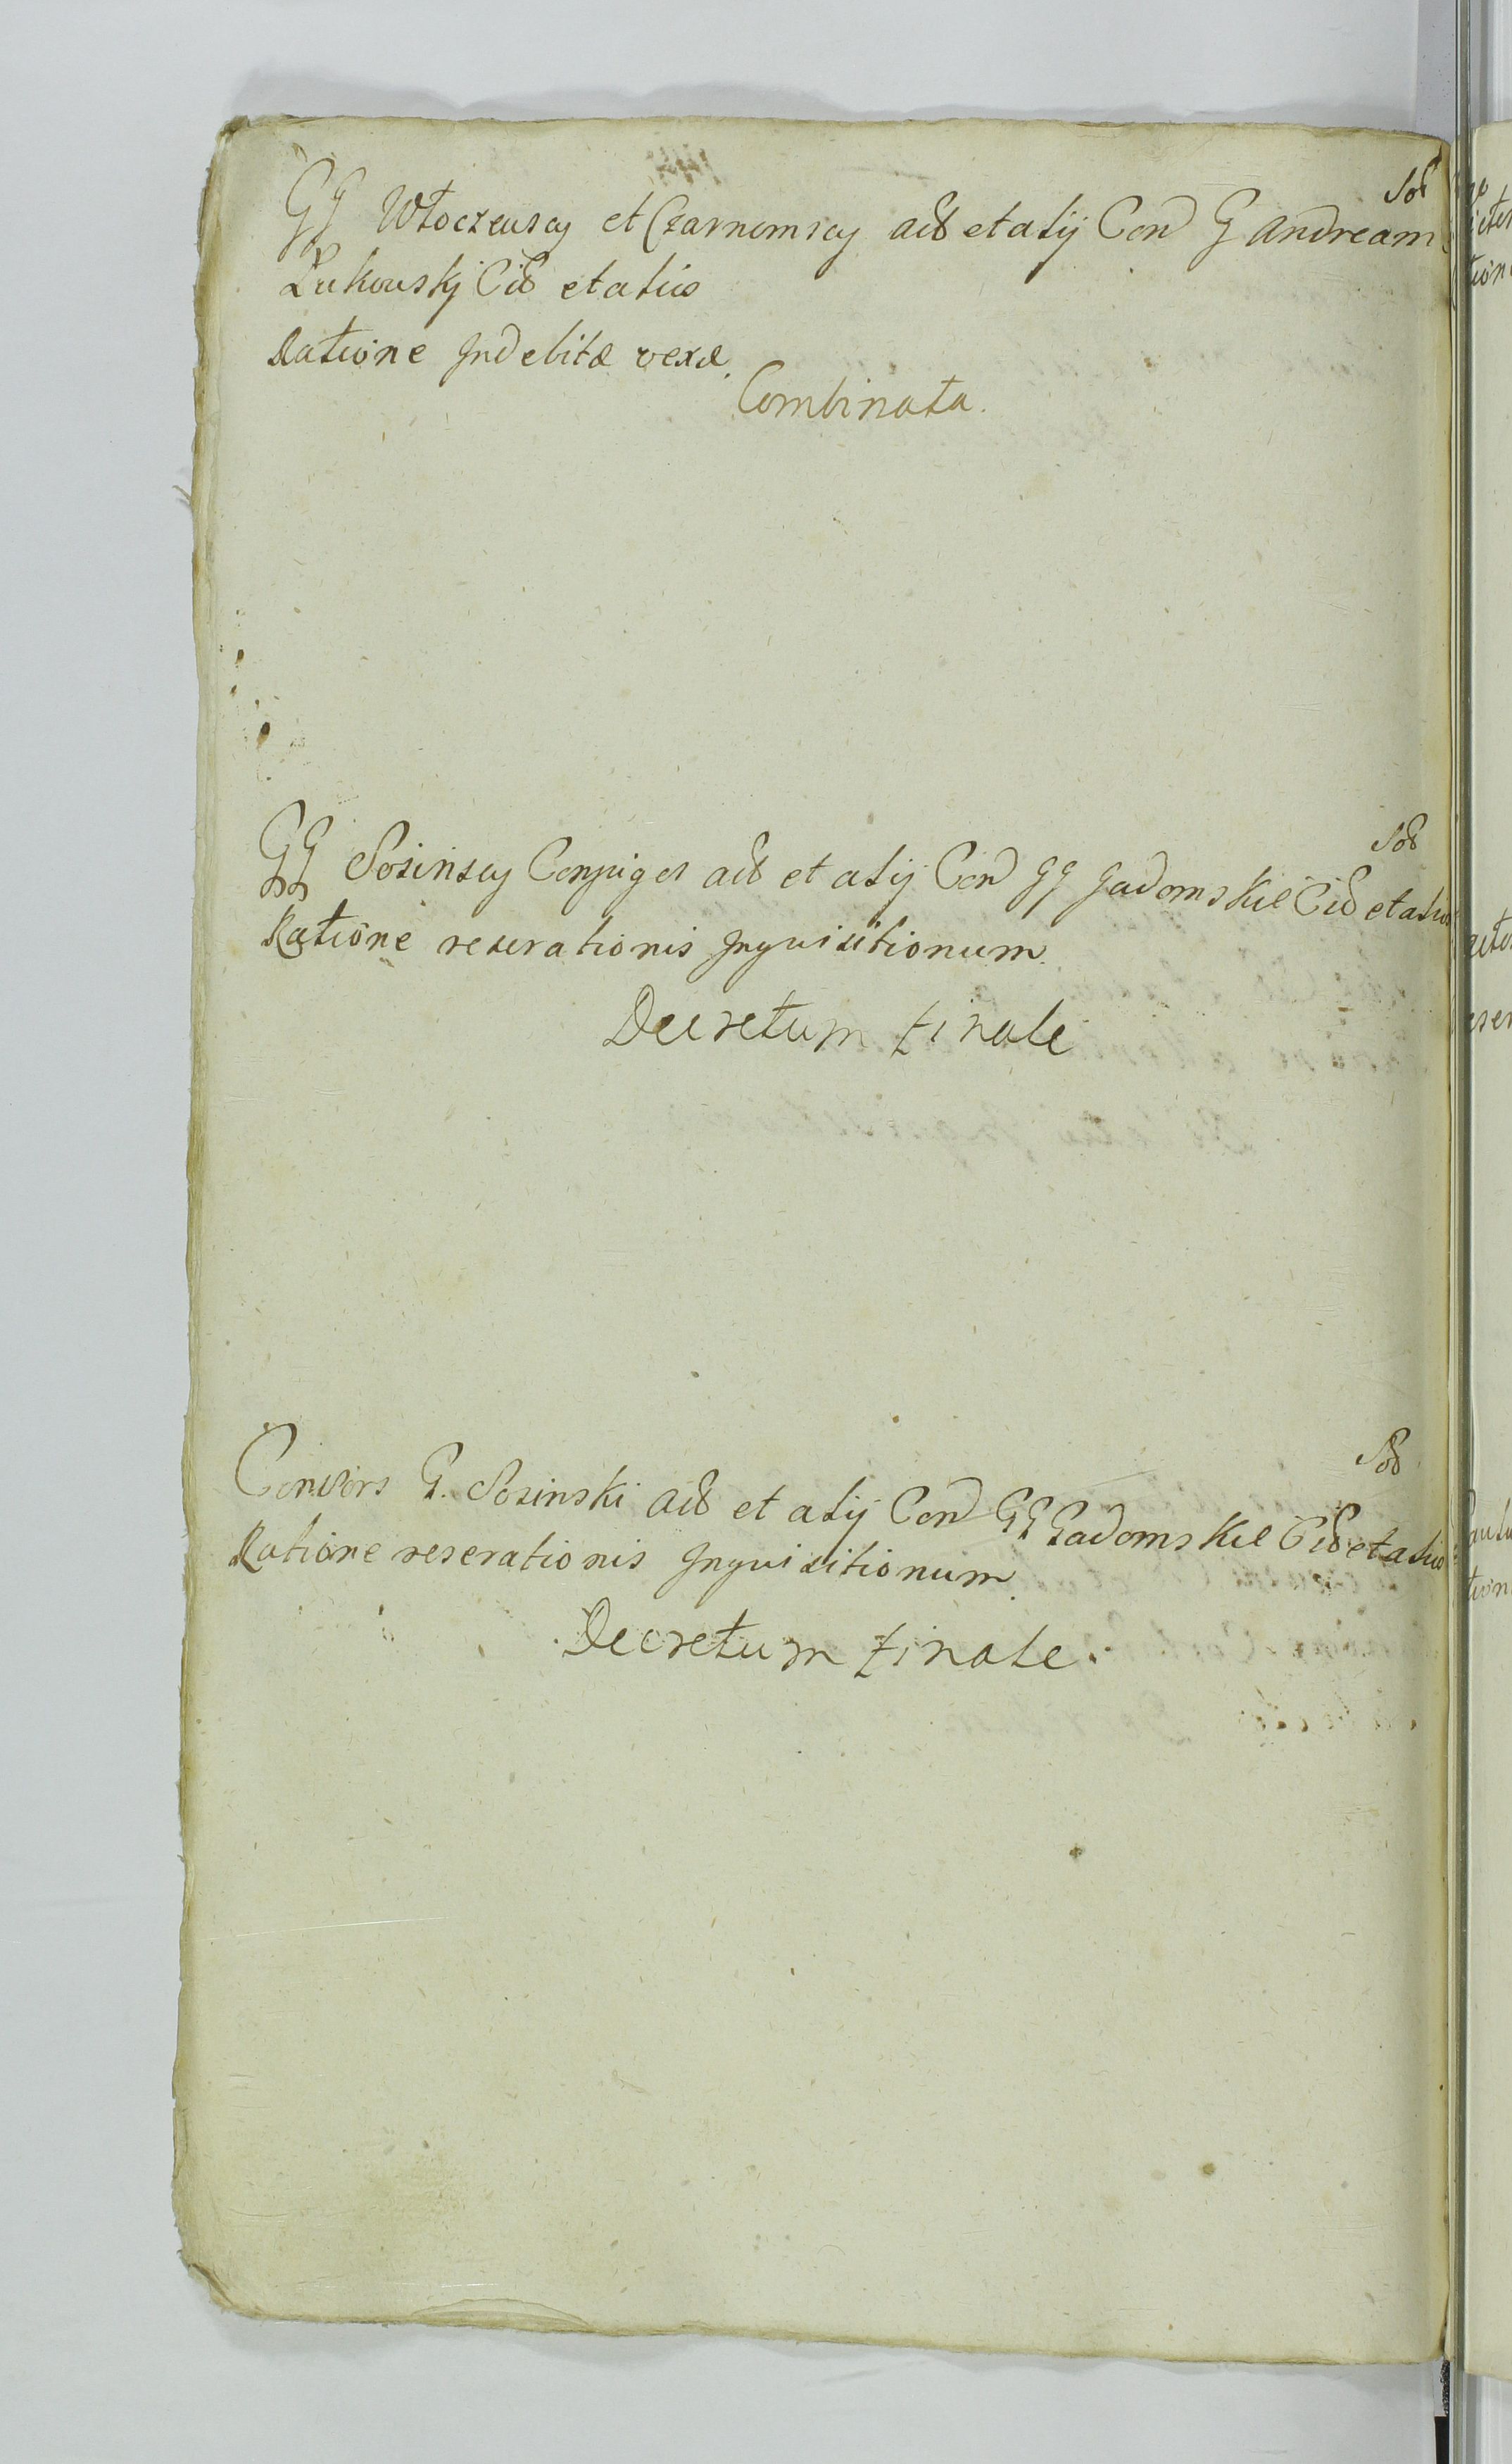 Sob
GG Włoczewscy et Czarnomscy actb et alij Con G Andream
Łukowskj Citt et alios
Ratione Indebitæ vexæ.
Combinata.
Sob
GG Sosinscy Conjuges actb et alij Con GG Gadomskie Citt et alios
Ratione reserationis Inquisitionum.
Decretum finale
Sob
Consors G. Sosinski actb et alij Con GG Gadomskie Citt et alios
Ratione reserationis Inquisitionum.
Decretum finale.